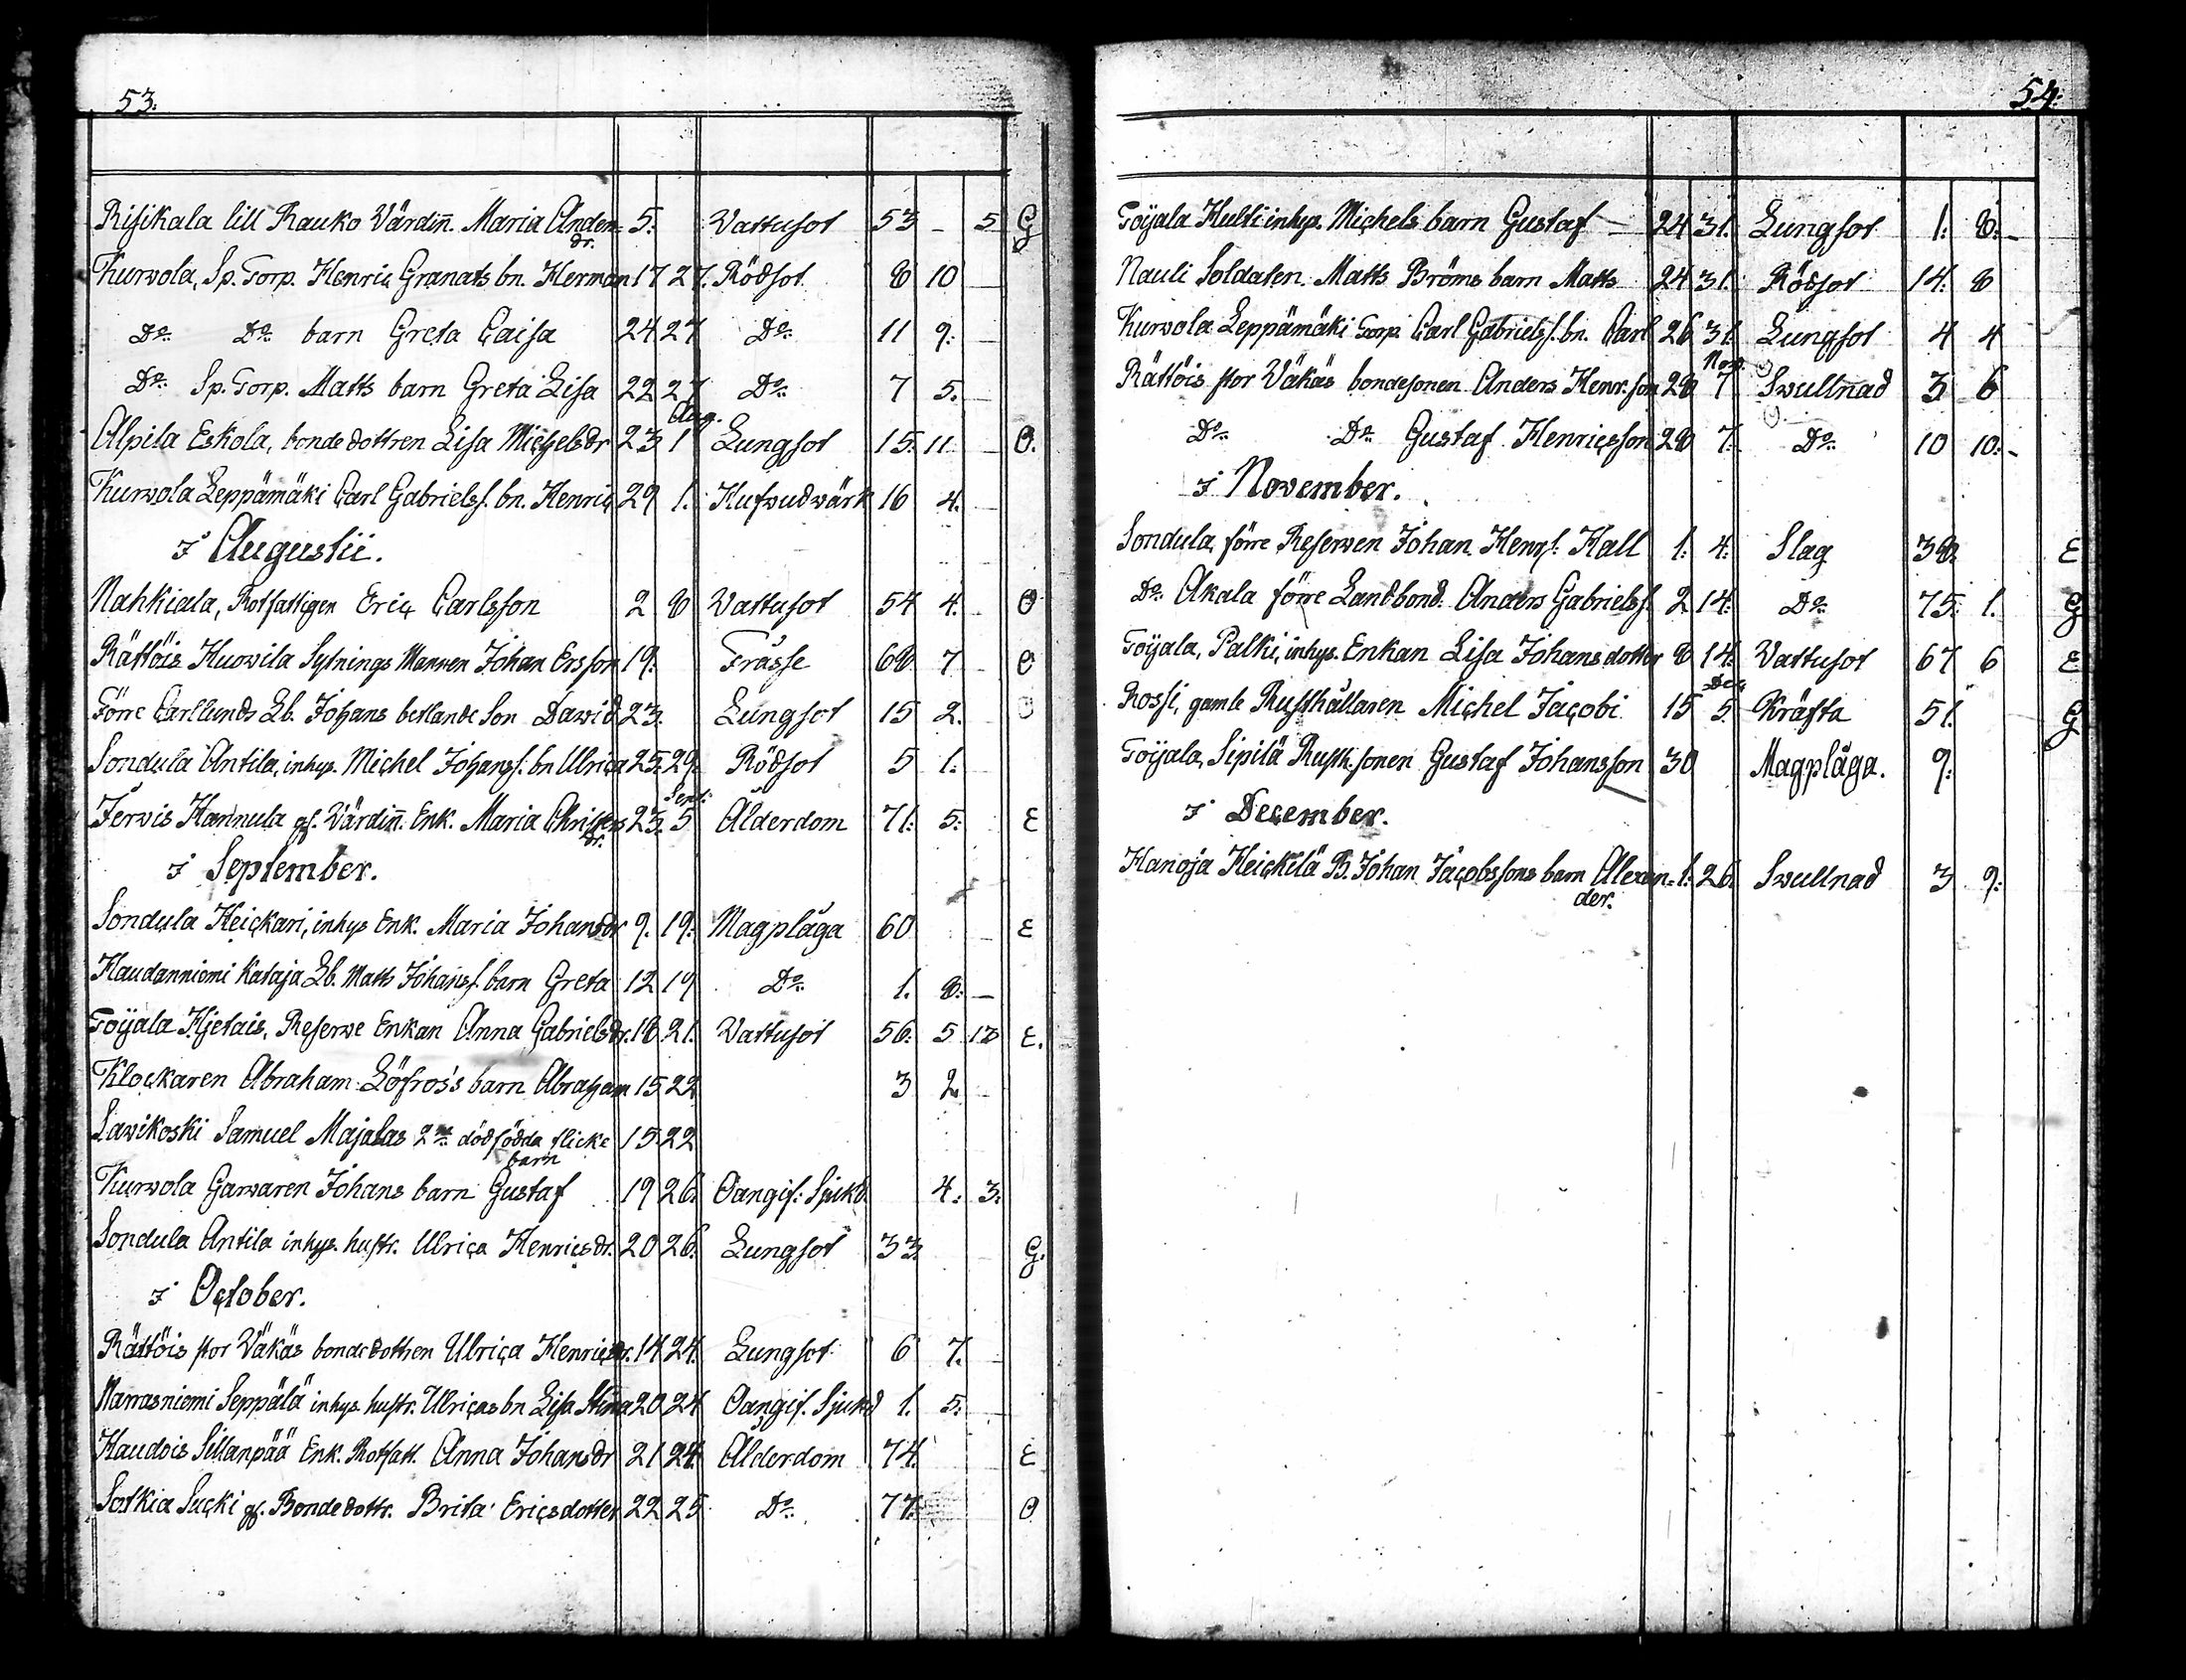 53.
Risikala lill Rauko Värdin̄. Maria Anders= 5. Vattusot 53 - 5 G
dr.
Kurvola, Sp. Torp. Henric Granats bn. Herman 17 27. Rödsot 8 10 -
Do: Do: barn Greta Caisa 24 27 Do: 11 9: -
Do: Sp. Torp. Matts barn Greta Lisa 22 27 Do: 7 5. -
Aug.
Alpila Eskola, bonde dottren Lisa Michelsdr 23 1 Lungsot 15. 11 - O.
Kurvola Leppämäki Carl Gabrielss. bn. Henric 29 1. Hufvudvärk 16 4. -
i Augustii.
Nahkiala, Rotfattigen Eric Carlsson 2 8 Vattusot 54 4. - O
Rättöis Huovila Sytnings Mannen Johan Ersson 19. Frässe 68 7 - O
Förre Carllunds Lb. Johans betlande Son David 23. Lungsot 15 2. O
Sondula Antila, inhys. Michel Johanss. bn Ulrica 25. 29. Rödsot 5 1.
Sept:
Jervis Hannula gf. Värdin̄. Enk. Maria Christers 25. 5 Ålderdom 71. 5. E
dr.
i September.
Sondula Heickari, inhys Enk. Maria Johansdr 9. 19. Magplåga 60 - E
Haudanniemi Kataja Lb. Matts Johanss. barn Greta 12 19 Do: 1. 8. -
Toijala Hietais, Reserve Enkan Anna Gabrielsdr. 18 21. Vattusot 56. 5 18 E.
Klockaren Abraham Löfros's barn Abraham 15 22 3 2 -
Savikoski Samuel Majalas 2ne dödfödda flicke 15 22
barn
Kurvola Garvaren Johans barn Gustaf 19 26. Oangif: Sjukd. 4. 3.
Sondula Antila inhys. hustr. Ulrica Henricsdr. 20 26. Lungsot 33. G.
i October.
Rättöis stor Väkäs bondedottren Ulrica Henricsdr. 14 24. Lungsot 6 7. -
Narrasniemi Seppälä inhys. hustr. Ulricas bn Lisa Stina 20 24 Oangif. Sjukd 1. 5. -
Haudois Sillanpää Enk. Rotfatt. Anna Johansdr 21 24. Ålderdom 74. E
Sotkia Sucki gf. Bonde dottr. Brita Ericsdotter 22 25 Do: 77. O
54.
Toijala Hulti inhys. Michels barn Gustaf 24 31. Lungsot 1. 8. -
Nauli Soldaten Matts Bröms barn Matts 24 31. Rödsot 14. 8
Kurvola Leppämäki Torp. Carl Gabrielss. bn. Carl 26 31. Lungsot 4 4
Nov.
Rättöis stor Väkäs bondesonen Anders Henr.son 28 7 Svullnad 3 6
Do: Do: Gustaf Henricsson 28 7. Do: 10 10. -
i November.
Sondula, förre Reserven Johan Henrs. Hall 1. 4. Slag 38. E
Do: Akala förre Landbond. Anders Gabrielss. 2 14. Do: 75. 1. G
Toijala, Palki, inhys. Enkan Lisa Johansdotter 8 14. Vattusot 67 6 E
Dec.
Rossi, gamle Rusthållaren Michel Jacobi 15 5. Kräfta 51. G
Toijala, Sipilä Rusth.sonen Gustaf Johansson 30 Magplåga. 9.
i December.
Hanoja Heickilä B. Johan Jacobssons barn Alexan= 1. 26. Svullnad 3 9.
der.